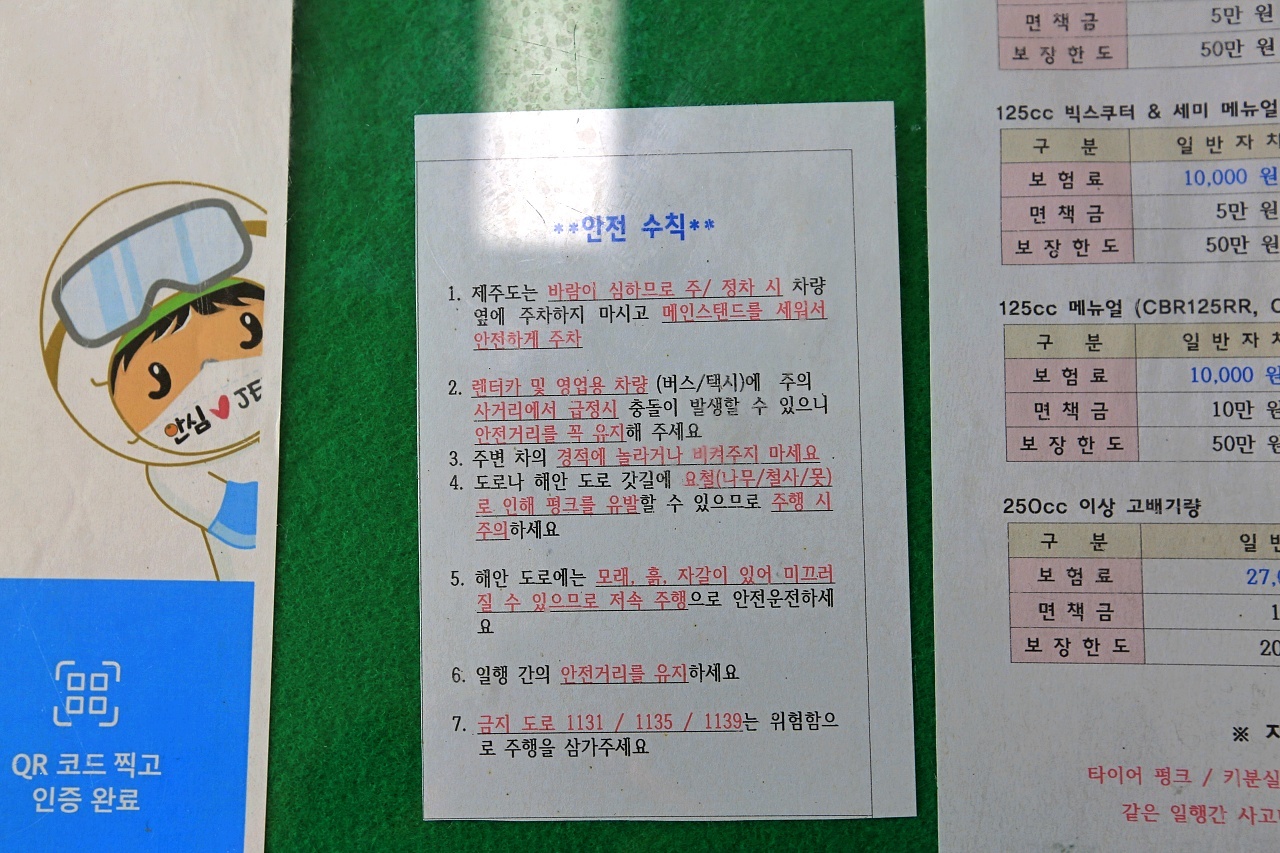 안심 ♥ JE
QR 코드 찍고
인증 완료
**안전 수칙**
1. 제주도는 바람이 심하므로 주/ 정차 시 차량
옆에 주차하지 마시고 메인스탠드를 세워서
안전하게 주차
2. 렌터카 및 영업용 차량 (버스/택시)에 주의
사거리에서 급정시 충돌이 발생할 수 있으니
안전거리를 꼭 유지해 주세요
3. 주변 차의 경적에 놀라거나 비켜주지 마세요
4. 도로나 해안 도로 갓길에 요철(나무/철사/못)
로 인해 펑크를 유발할 수 있으므로 주행 시
주의하세요
5. 해안 도로에는 모래, 흙, 자갈이 있어 미끄러
질 수 있으므로 저속 주행으로 안전운전하세
요
6. 일행 간의 안전거리를 유지하세요
7. 금지 도로 1131 / 1135 / 1139는 위험함으
로 주행을 삼가주세요
면 책 금 5만 원
보 장 한 도 50만 원
125cc 빅스쿠터 & 세미 메뉴얼
구 분 일 반 자 차
보 험 료 10,000 원
면 책 금 5만 원
보 장 한 도 50만 원
125cc 메뉴얼 (CBR125RR,
구 분 일 반 자 차
보 험 료 10,000 원
면 책 금 10만 원
보 장 한 도 50만 원
250cc 이상 고배기량
구 분 일 반
보 험 료 27,
면 책 금 1
보 장 한 도 20
※
타이어 펑크 / 키분실
같은 일행간 사고